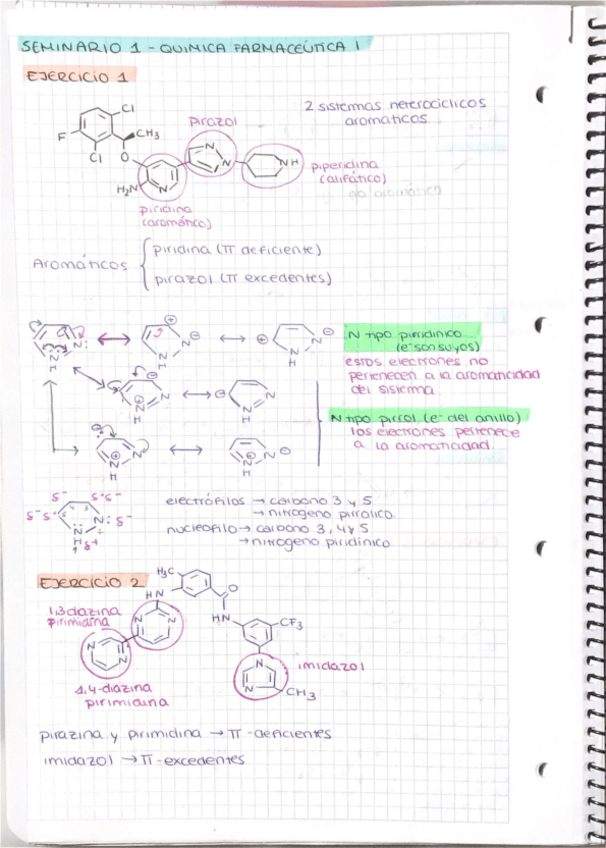 SEMINARIO 1 - QUIMICA FARMACEÚTICA I
EJERCICIO 1
2 sistemas heterociclicos
aromaticos
Cl
Pirazol
F
CH3
Cl
O
N
N
NH
piperidina
(alifático)
no aromático
H2N
N
piridina
(aromático)
Aromáticos
piridina (π deficiente)
pirazol (π excedentes)
N tipo pirridinico
(e- son suyos)
estos electrones no
pertenecen a la aromaticidad
del sistema
N tipo pirrol (e- del anillo)
los electrones pertenece
a la aromaticidad.
electrófilos → carbono 3 y 5
→ nitrogeno pirrolico.
nucleofilo → carbono 3, 4 y 5
→ nitrogeno piridinico
EJERCICIO 2
H3C
O
HN
HN
CF3
1,3 diazina
pirimidina
N
N
N
N
imidazol
N
N
CH3
1,4-diazina
pirimidina
pirazina y pirimidina → π-deficientes
imidazol → π-excedentes